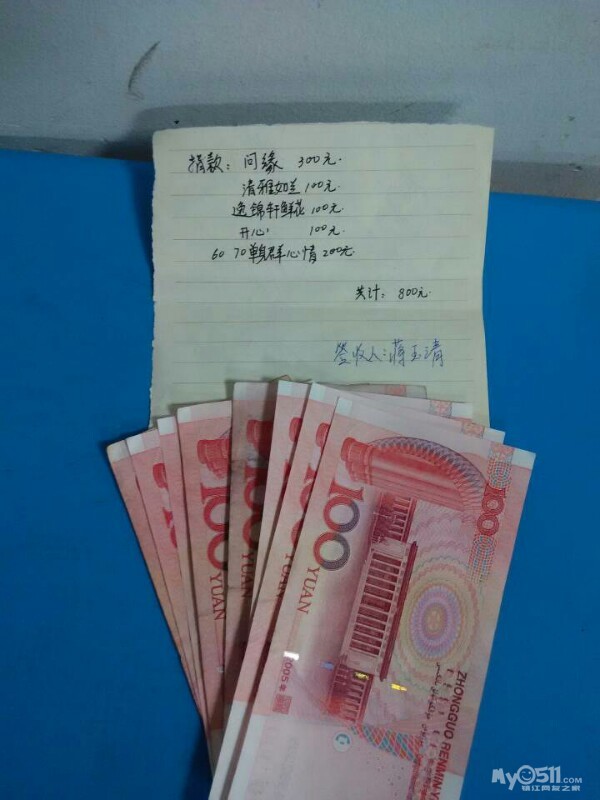 捐款: 问缘 300元.
清雅如兰 100元.
逸锦轩鲜花 100元.
开心: 100元.
60 70单身群心情 200元.
共计: 800元.
签收人: 蒋玉清
100
YUAN
100
YUAN
100
YUAN
100
100
2005年
ZHONGGUO RENMINY
My0511.com
镇江网友之家